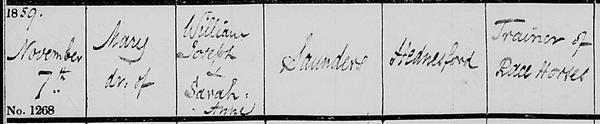 1859.
November
7th
No. 1268
Mary
dr. of
William
Joseph
&
Sarah
Anne
Saunders
Hednesford
Trainer of
Race Horses